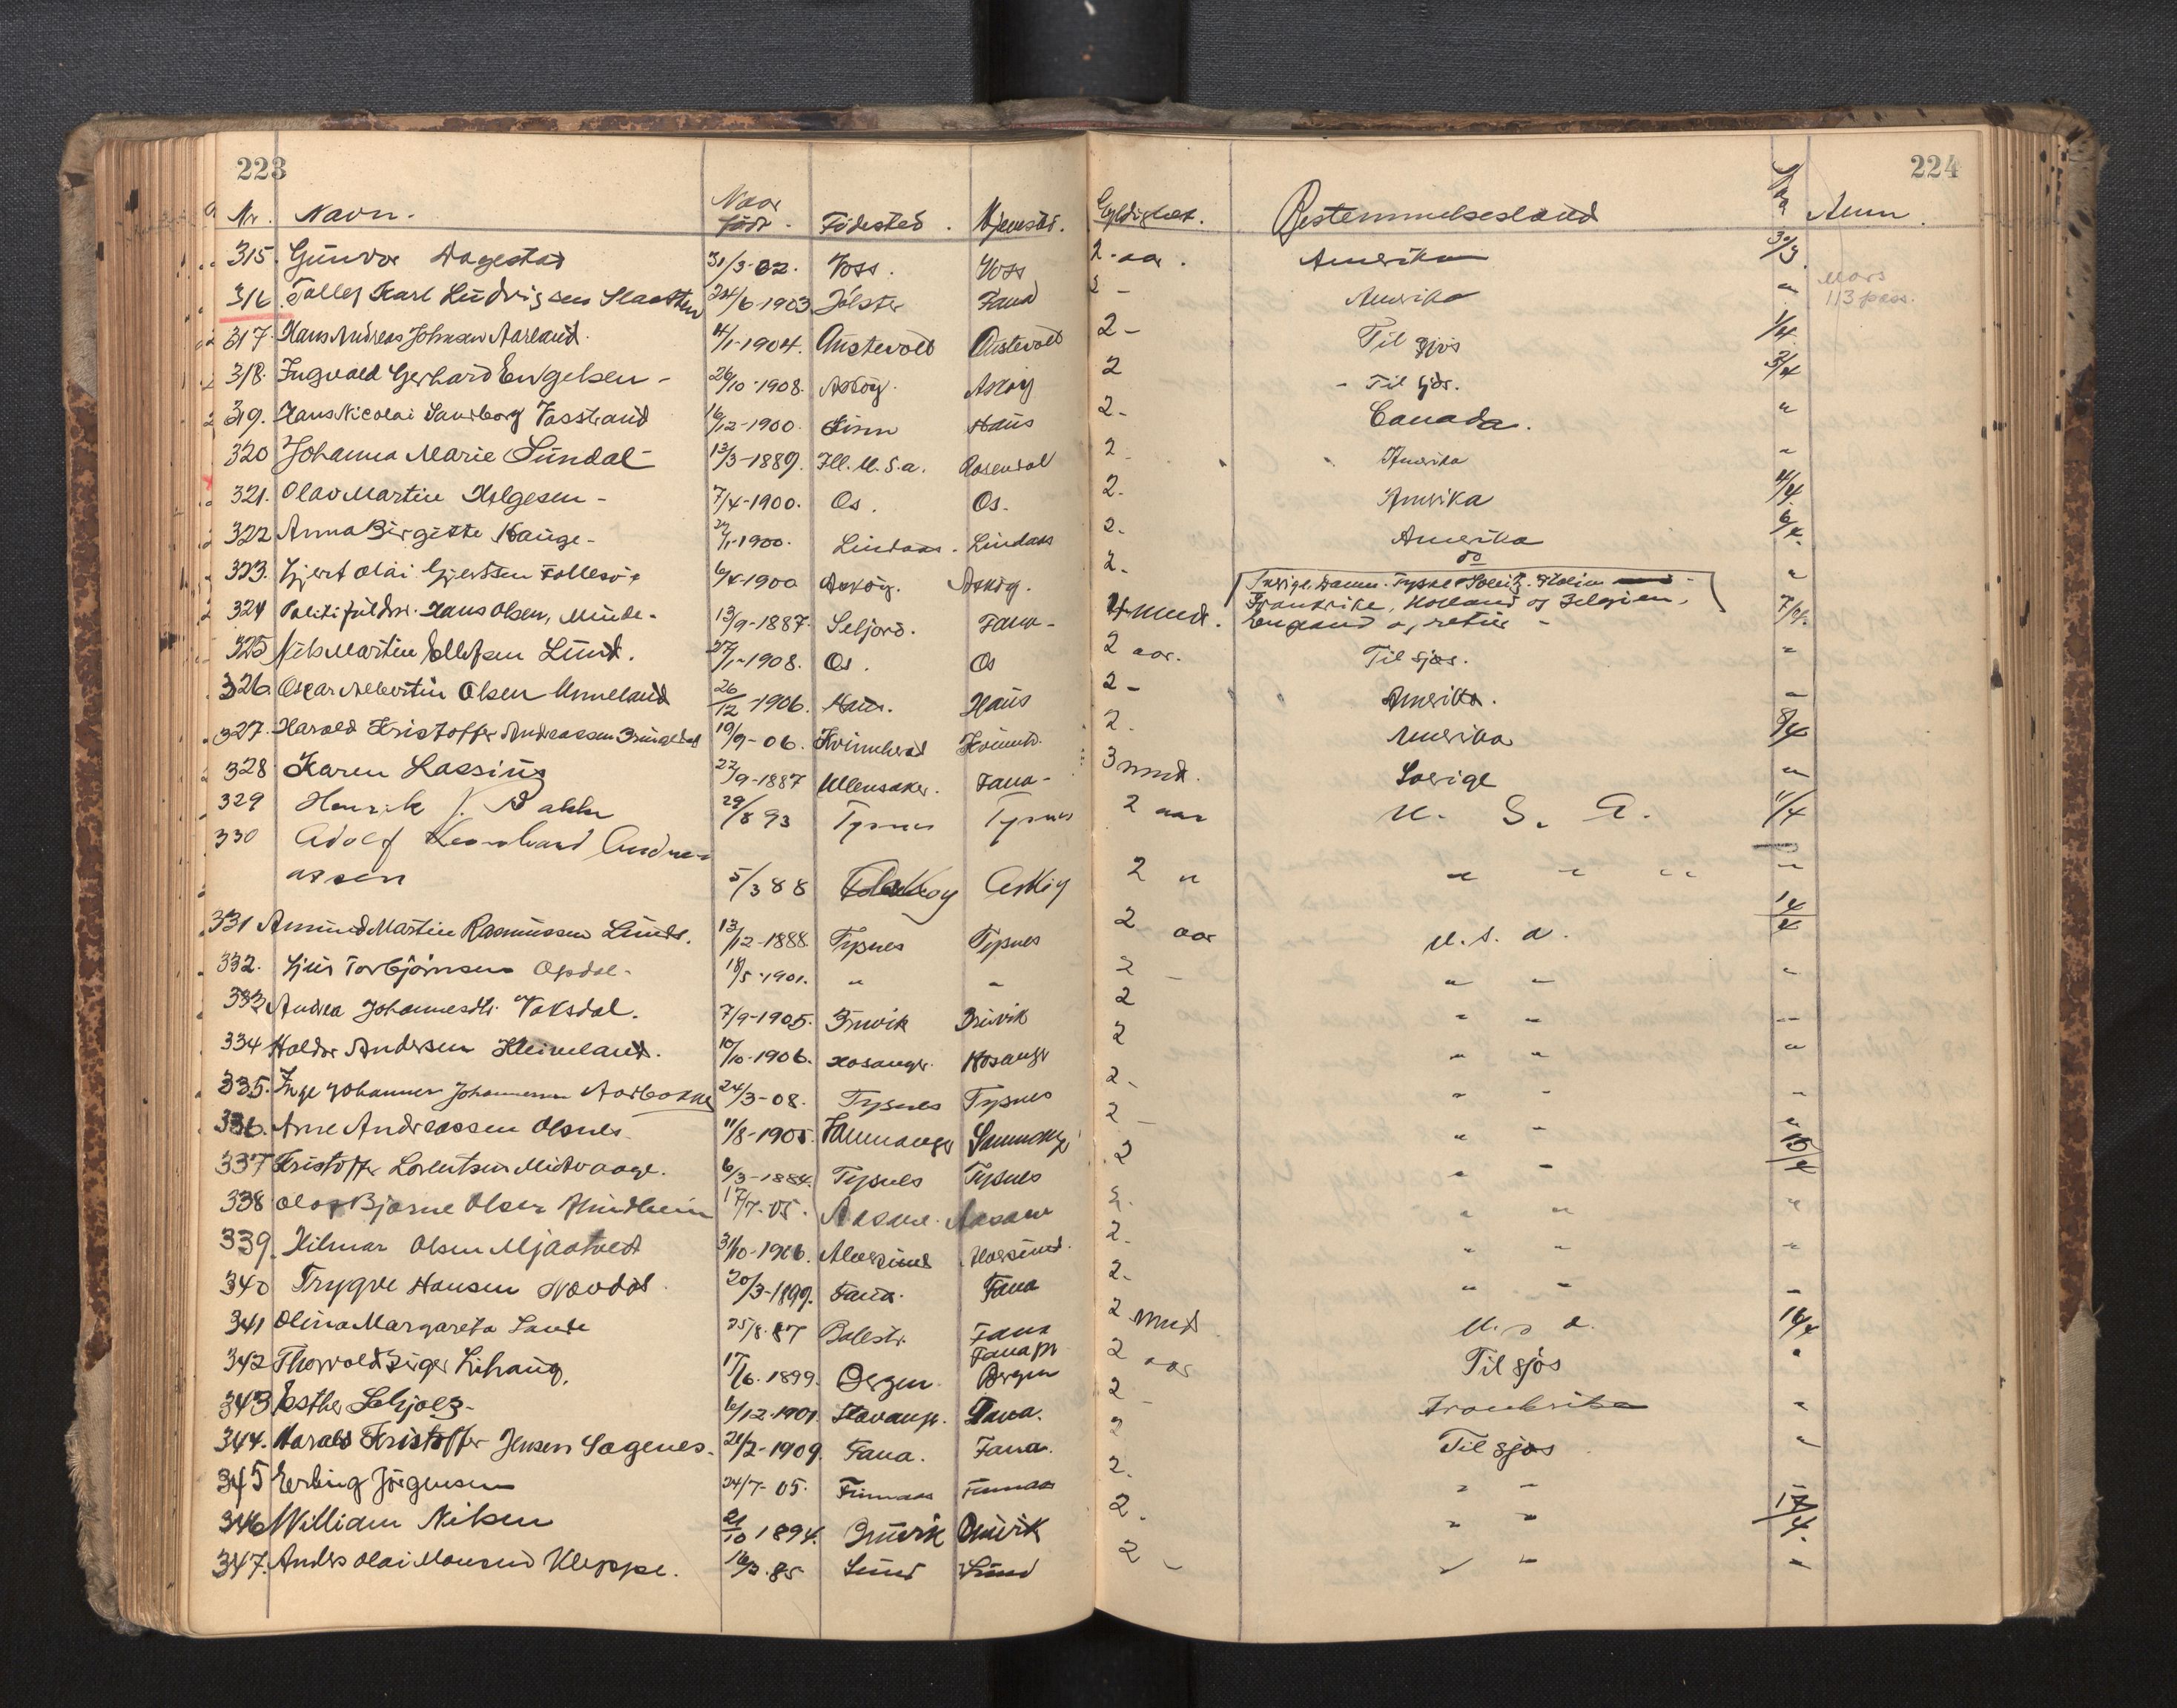 223
224
Nr. Navn. Naar född. Födested. Hjemsted. Gyldighet. Bestemmelsesland Anm.
315. Gunvor Dagestad 31/3-02. Voss. Voss 2-aar. Amerika 30/3.
316 Tollef Karl Ludvigsen Slaatten 24/6-1903 Jölster Fana 2 - Amerika "
Mars
113 pass.
317. Hans Andreas Johnsen Aarland. 4/1-1904. Austevold Austevold 2 - Til sjös 1/4
318. Ingvald Gerhard Engelsen - 26/10-1908. Asköy. Asköy 2 - Til sjös. 3/4
319. Hans Nicolai Vasstrand 16/12-1900. Haus 2- Canada. "
320 Johanna Marie Sundal - 13/3-1889. Ill. U.S.a. Rosendal 2. Amerika "
321. Olav Martin Helgesen - 7/4-1900. Os. Os. 2. Amerika 4/4.
322 Anna Birgitte Hauge - 1900. Lindaas. Lindaas 2. Amerika 6/4.
323. Gjert Olai Gjertsen Follesö 1900 Asköy. Asköy. 2. do "
324 Politifuldm. Hans Olsen, Minde - 13/9-1887. Seljord. Fana - 4 mnd. Sverige. Danm. Tyskl.
Frankrike, Holland og Belgien,
England og retur - 7/4.
325 Nils Martin Ellefsen Lund. 27/1-1908. Os. Os 2 aar. Til sjøs. "
326. Oskar Albertin Olsen Unneland 26/12-1906. Haus. Haus 2 - Amerika. "
327. Harald Kristoffer Andreassen 19/9-06. Kvinnherad Kvinnh. 2. Amerika 8/4
328 Karen Lassing 22/9-1887 Ullensaker. Fana - 3 mnd. Sverige "
329 Henrik J. Bakke 29/8 93 Tysnes Tysnes 2 aar U. S. A. 11/4
330 Adolf Leonhard Andre-
assen 5/3 88 Asköy 2 " " " " "
331 Amund Martin Rasmussen Lunde. 13/12-1888. Tysnes Tysnes 2 aar U. S. a. 14/4
332. Torbjörnsen Opdal - 18/5-1901. " " 2 - " " "
333 Andrea Johannesdtr. Vaksdal. 7/9-1905. Bruvik Bruvik 2 " " "
334 Haldor Andersen Kleiveland. 10/10-1906. Hosanger. Hosangr 2 " " "
335. Inge Johannes Johannessen Aarbakke 24/3-08. Tysnes Tysnes 2 - " " "
336. Arne Andreassen Olsnes 11/8-1905. Sammanger 2 - " " "
337 Kristoffer Lorentsen Midtvaage. 6/3-1884. Tysnes Tysnes 2 " - 15/4
338 Olaf Bjarne Olsen Hindheim 17/7-05. Aasane. Aasane 2. " " "
339. Hilmar Olsen Mjaatvedt 31/10-1906. Alversund Alversund. 2. " " "
340 Trygve Hansen Nordal. 20/3-1899. Fana. Fana 2. " " "
341 Olina Margareta Lande 25/8.87 Balestr. Fana 2 mnd U. s a. 16/4
342 Thorvald Birger Lihaug. 17/6.1899. Bergen Fana pr Bergen 2 aar Til sjös "
343 Esther Schjölz - 6/12-1901. Stavanger. Fana. 2 - Frankrike "
344. Harald Kristoffer Jensen Sagenes. 21/2-1909. Fana. Fana. 2 Til sjøs "
345 Erling Jörgensen 24/7-05. Finnaas Finnaas 2. " "
346 William Nilsen 21/10 1894. Bruvik Bruvik 2. " " 17/4.
347. Anders Olai Monsen Kleppe. 85 Sund Sund 2 - " " "